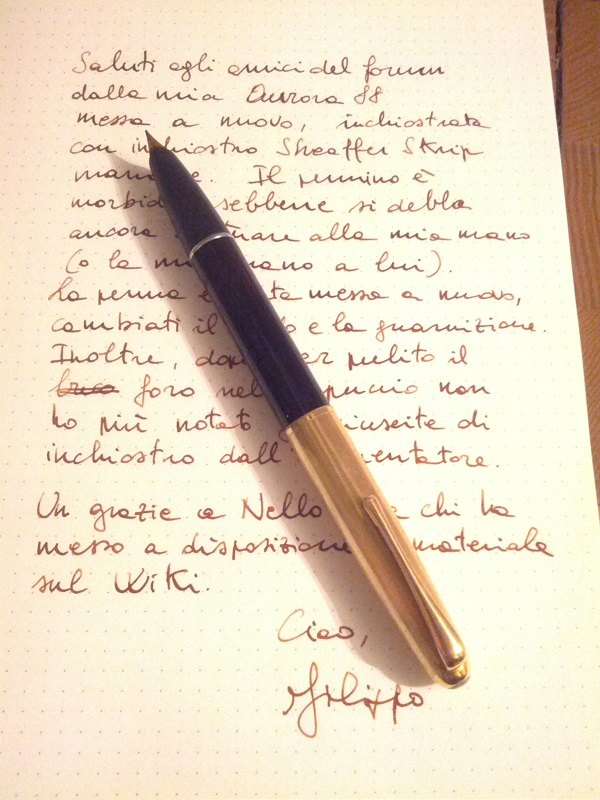 Saluti agli amici del forum
dalla mia Aurora 88
messa a nuovo, inchiostrata
con inchiostro Sheaffer Skrip
. Il pennino è
sebbene si debba
ancora alla mia mano
(o la mano a lui).
La penna è messa a nuovo,
cambiati il e la guarnizione.
Inoltre, pulito il
buco foro nel non
ho più fuoriuscite di
inchiostro dall'
Un grazie a Nello chi ha
messo a disposizione materiale
sul Wiki.
Ciao,
Filippo